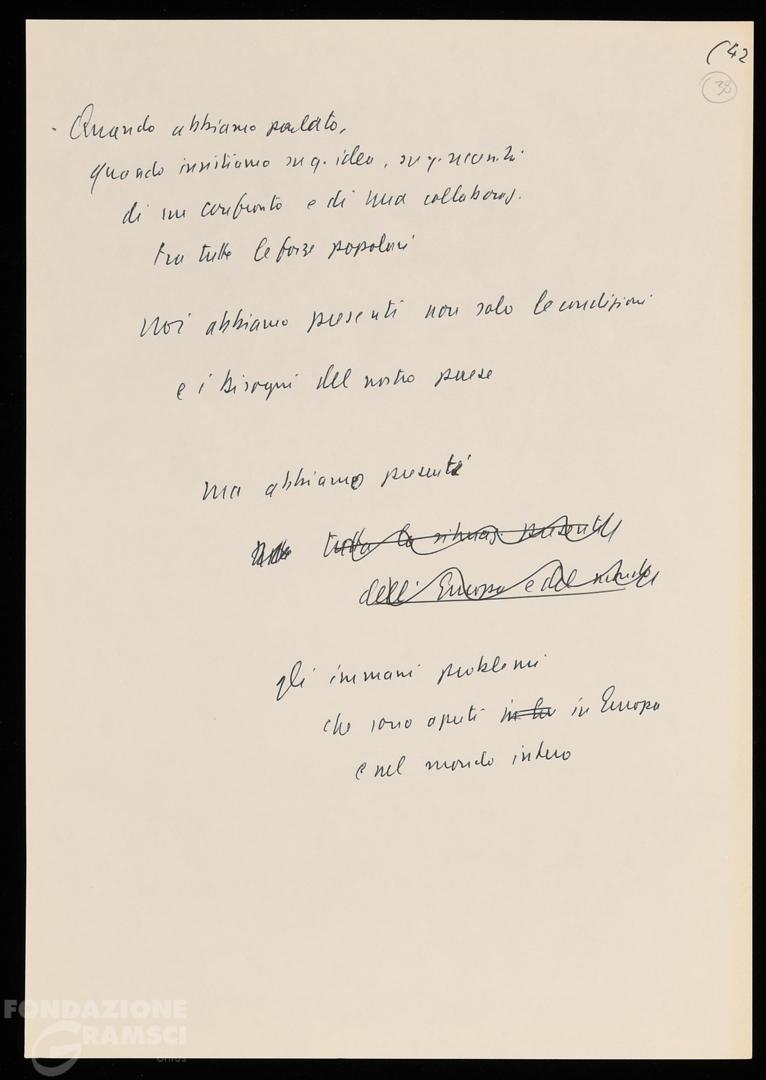 (42
38
- Quando abbiamo parlato,
quando insistiamo su q. idea, su q. necessità
di un confronto e di una collaboraz.
tra tutte le forze popolari
Noi abbiamo presenti non solo le condizioni
e i bisogni del nostro paese
ma abbiamo presenti
tutta la situaz. presente
dell'Europa e del mondo
gli immani problemi
che sono aperti in Europa
e nel mondo intero
FONDAZIONE
GRAMSCI
onlus